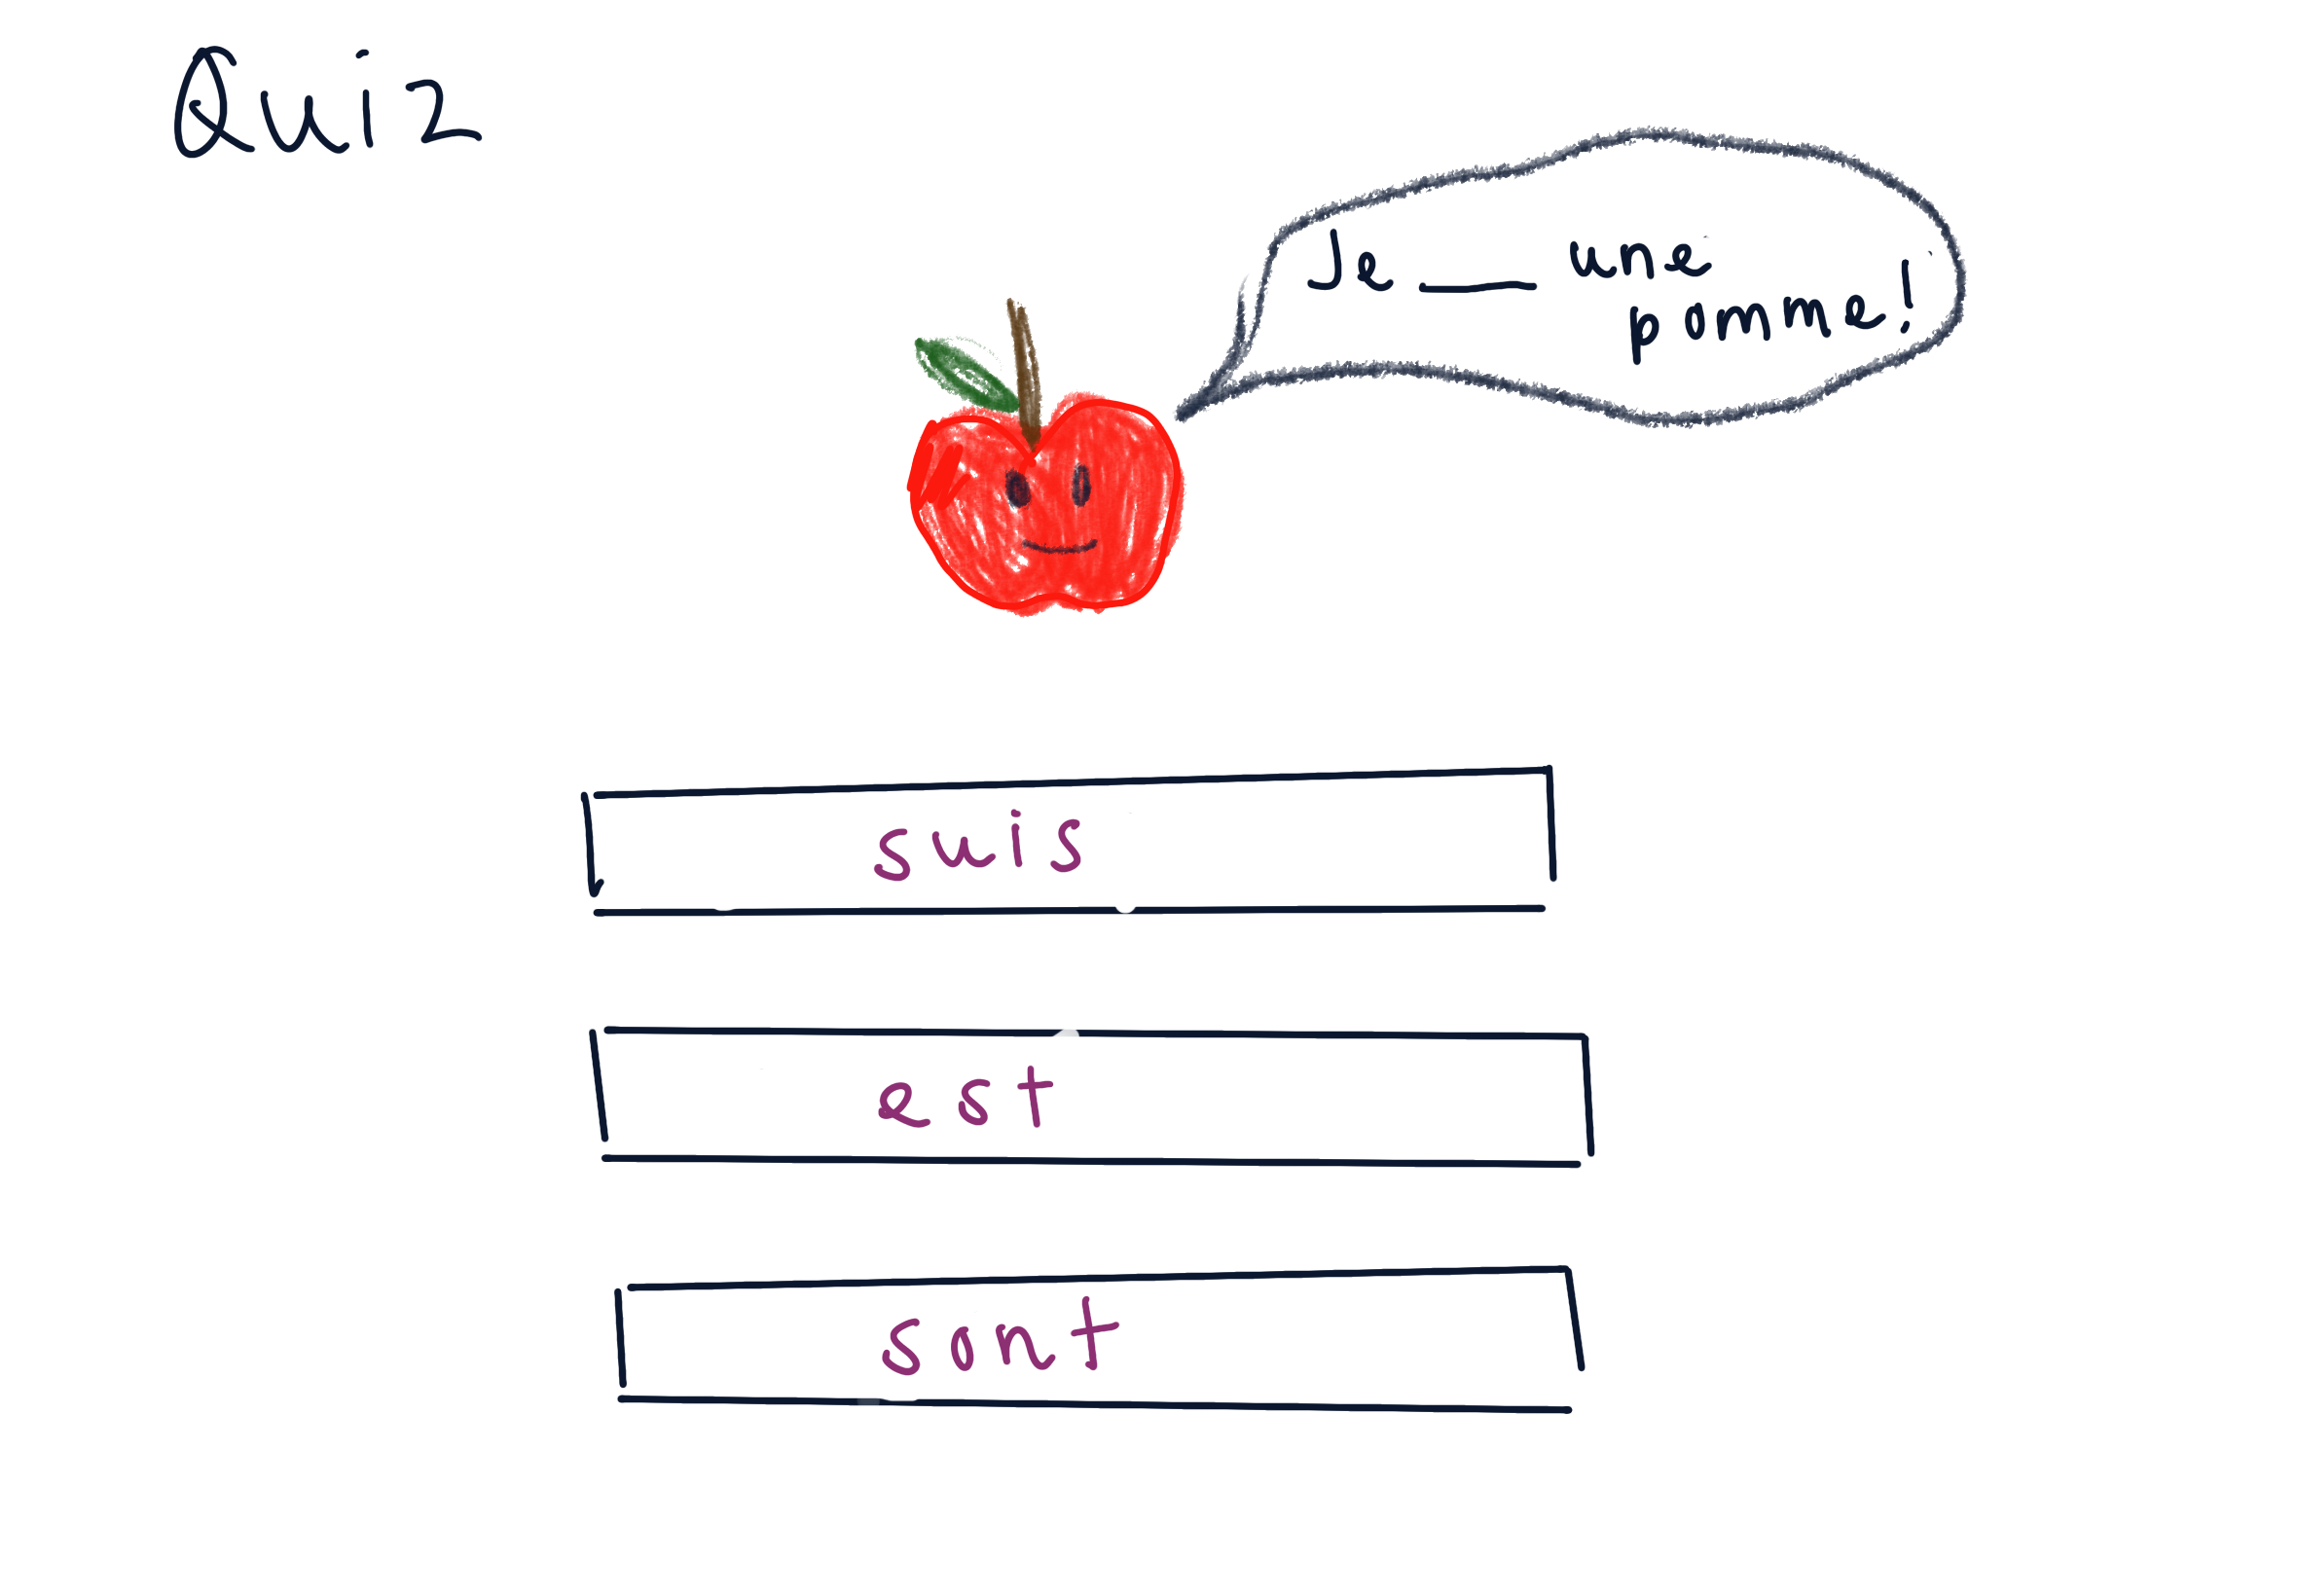 Quiz
Je ___ une
pomme!
suis
est
sont